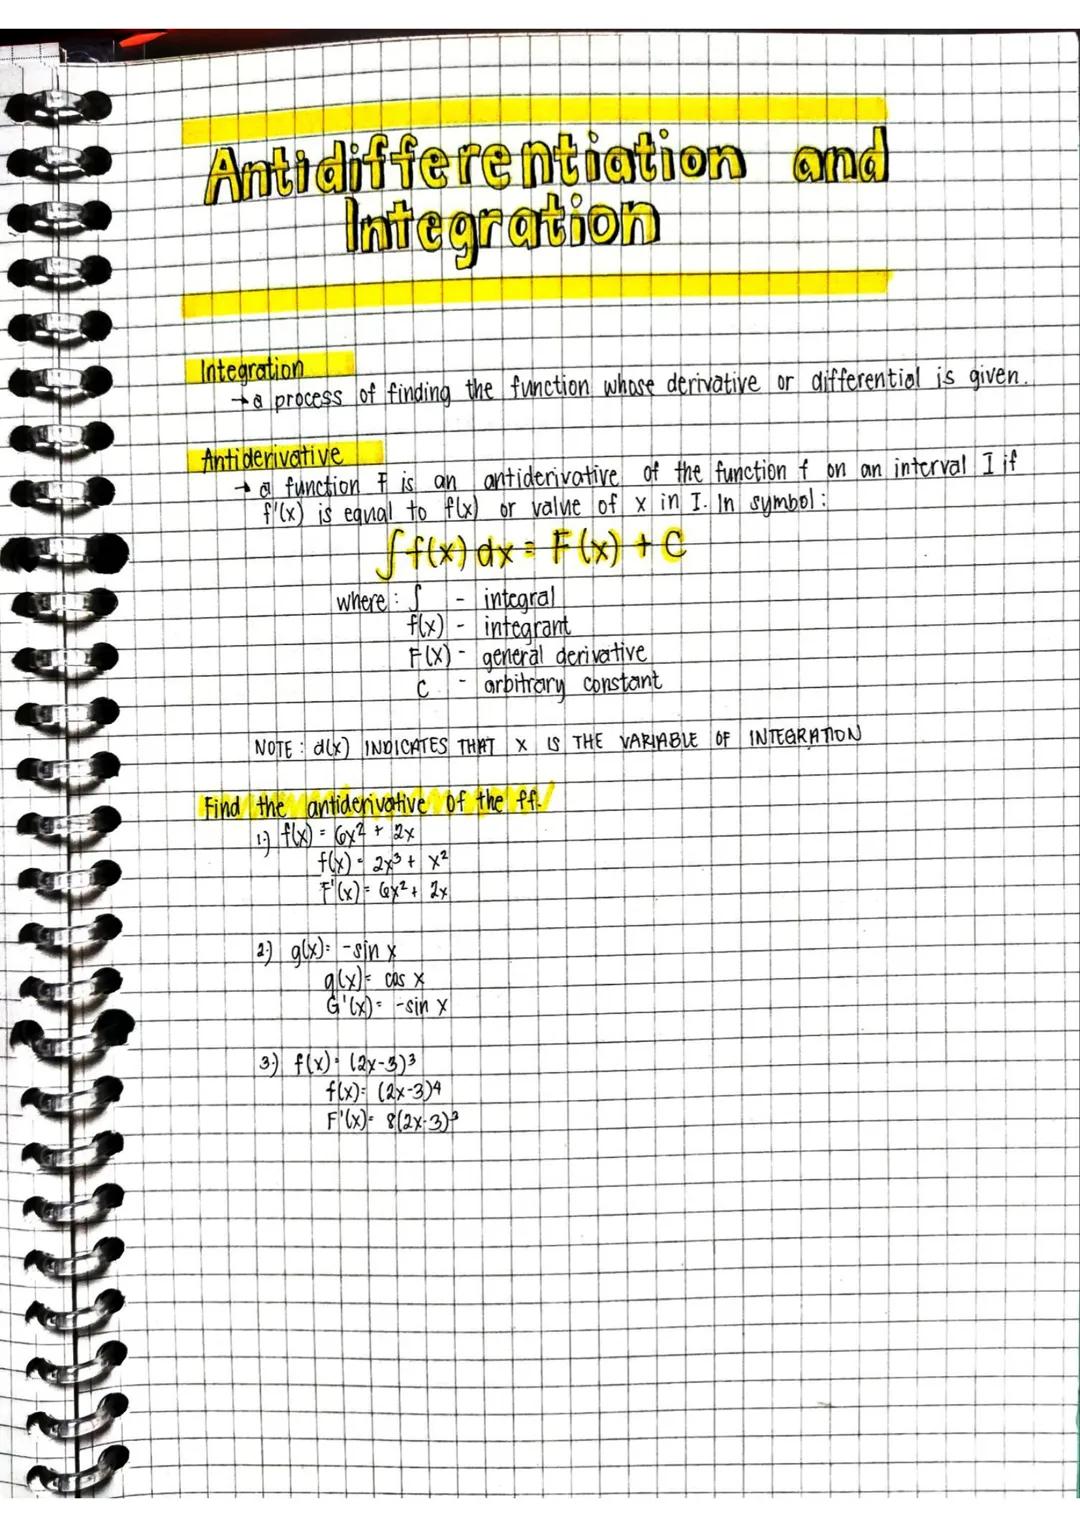 Antidifferentiation and
Integration
Integration
→ a process of finding the function whose derivative or differential is given.
Antiderivative
→ a function F is an antiderivative of the function f on an interval I if
f'(x) is equal to f(x) or value of x in I. In symbol:
∫f(x) dx = F(x) + C
where: ∫ - integral
f(x) - integrant
F(x) - general derivative
C - arbitrary constant
NOTE: d(x) INDICATES THAT x IS THE VARIABLE OF INTEGRATION
Find the antiderivative of the ff.
1.) f(x) = 6x² + 2x
f(x) = 2x³ + x²
F'(x) = 6x² + 2x
2.) g(x) = -sin x
g(x) = cos x
G'(x) = -sin x
3.) f(x) = (2x-3)³
f(x) = (2x-3)⁴
F'(x) = 8(2x-3)³